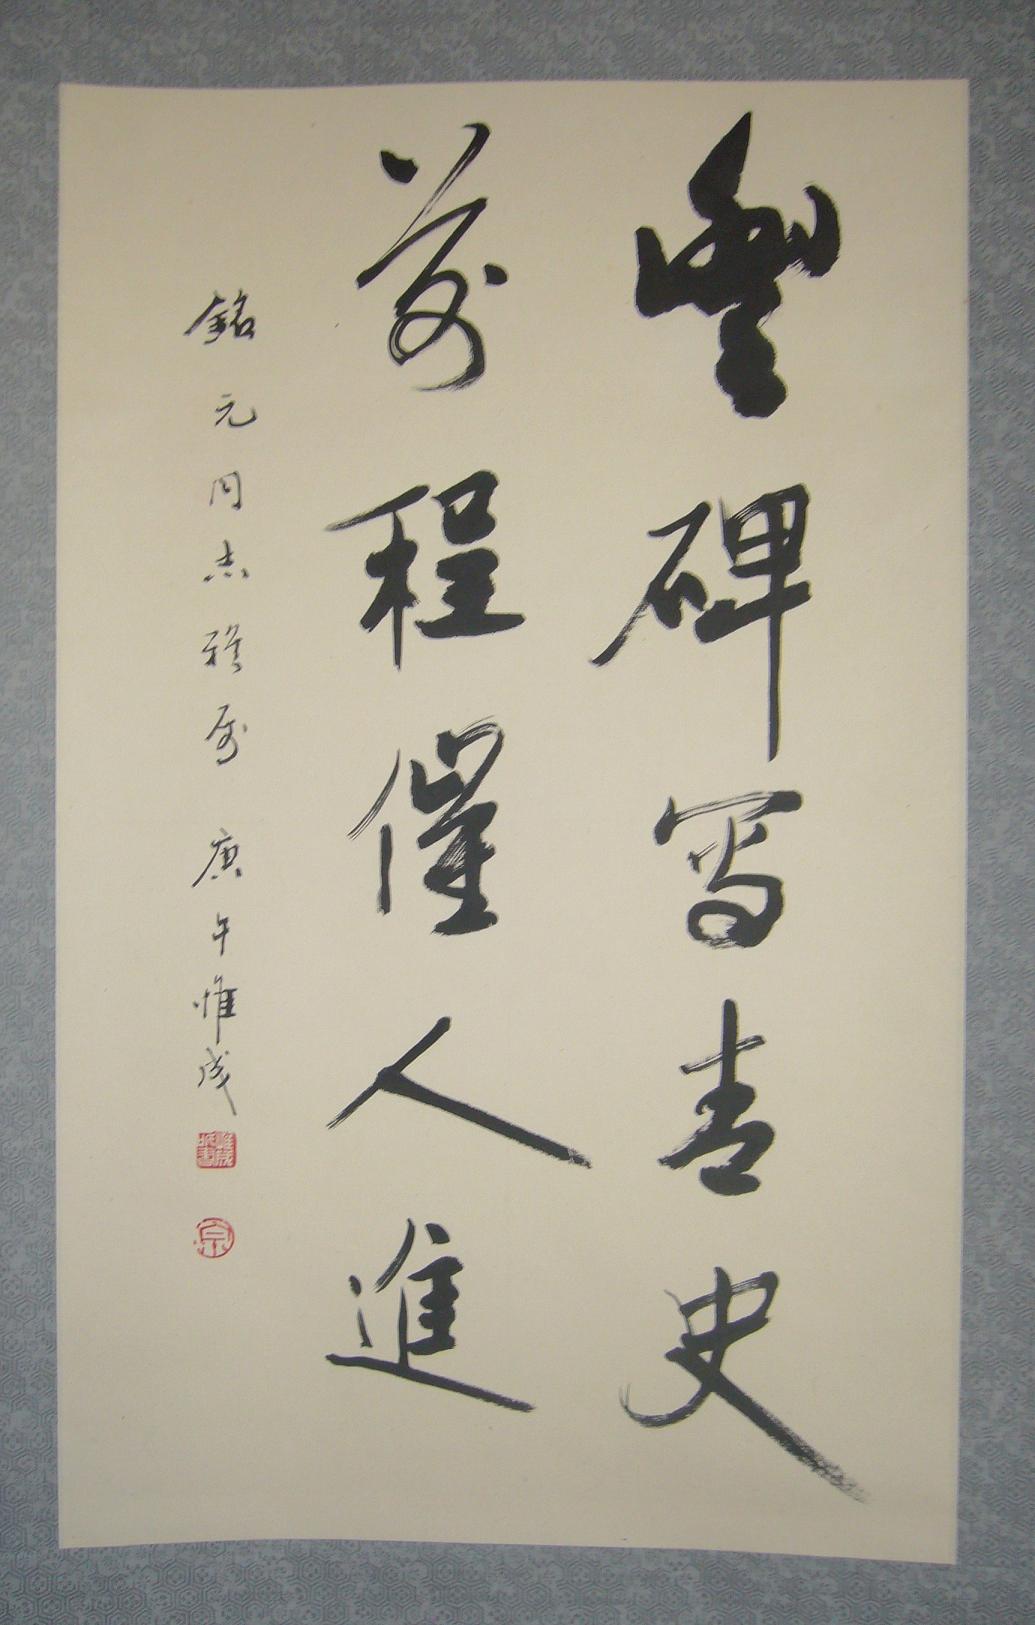 豐碑寫青史
前程催人進
銘元同志雅屬 庚午惟成